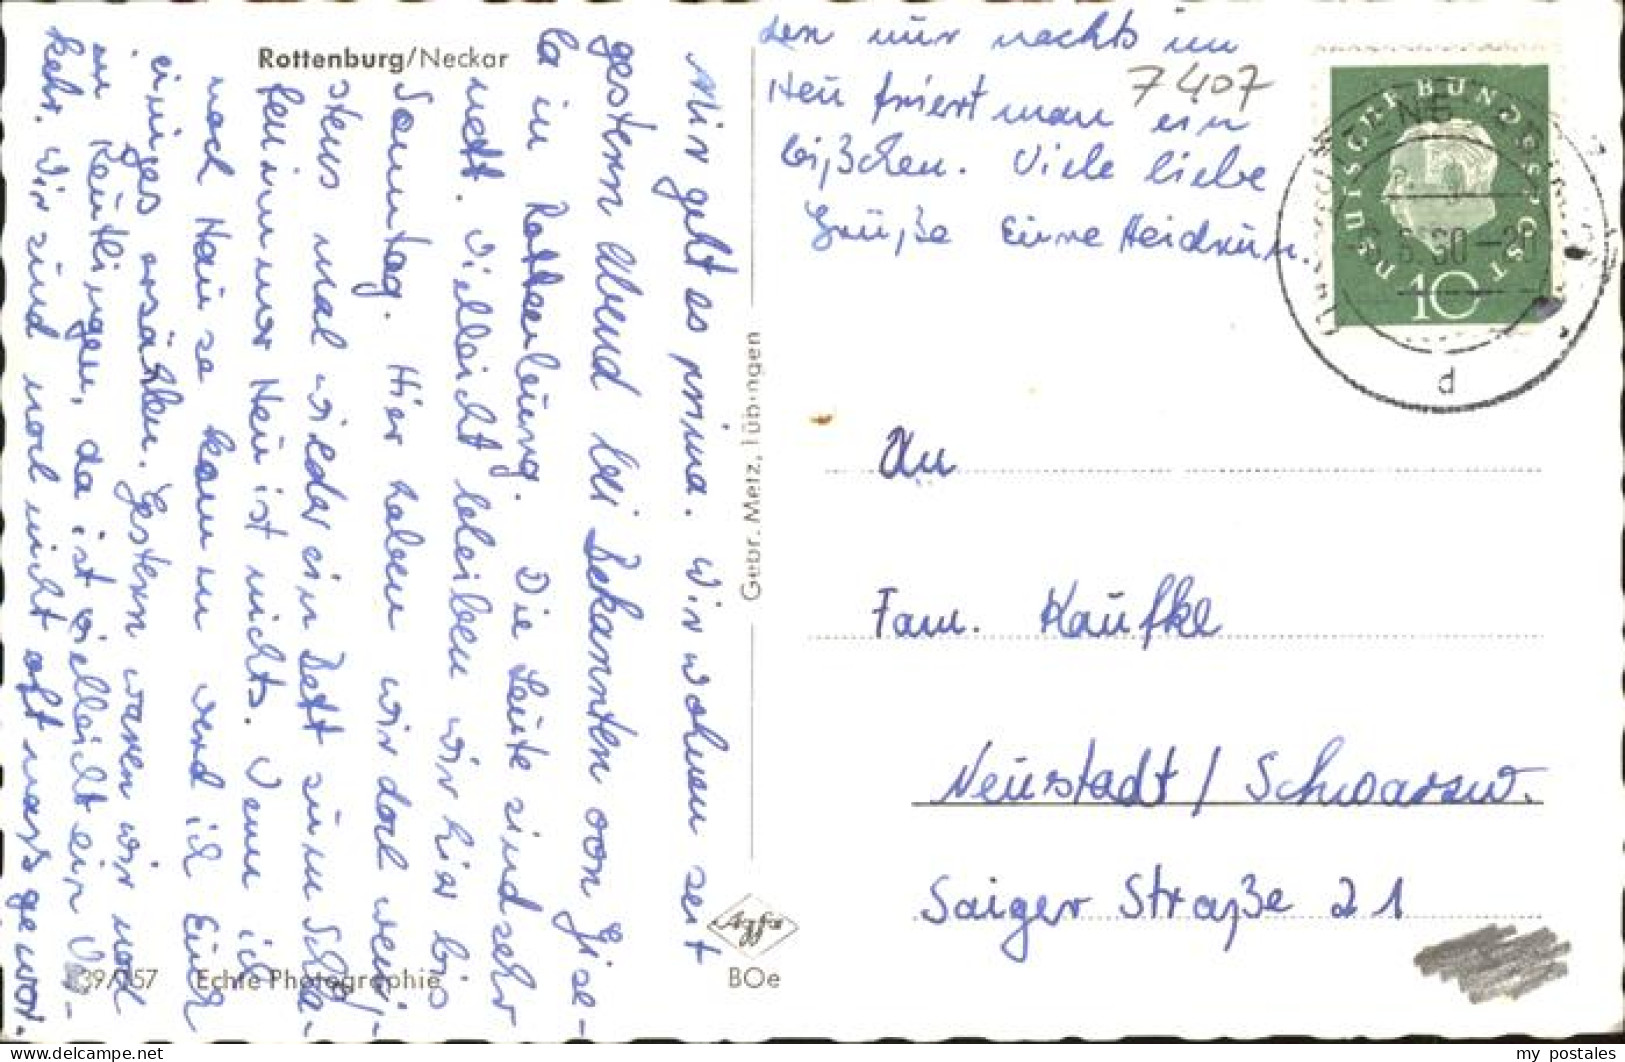 Rottenburg/Neckar
Mir geht es prima. Wir wohnen seit
gestern Abend bei Bekannten von Gise-
la in Rottenburg. Die Leute sind sehr
nett. Vielleicht bleiben wir hier bis
Sonntag. Hier haben wir doch wenig-
stens mal wieder ein Bett zum Schla-
fen immer Heu ist nichts. Wenn ich
nach Hause komm werd ich Euch
einiges erzählen. Gestern waren wir noch
in Reutlingen, da ist vielleicht ein Ver-
kehr. Wir sind noch nicht oft nass gewor-
den nur nachts im
Heu friert man ein
bißchen. Viele liebe
Grüße Eure Heidrun.
7407
DEUTSCHE BUNDESPOST
10
60-20
d
An
Fam. Kaufke
Neustadt / Schwarzw.
Saiger Straße 21
Gebr. Metz, Tübingen
Agfa
BOe
39/157 Echte Photographie
my postales
www.delcampe.net